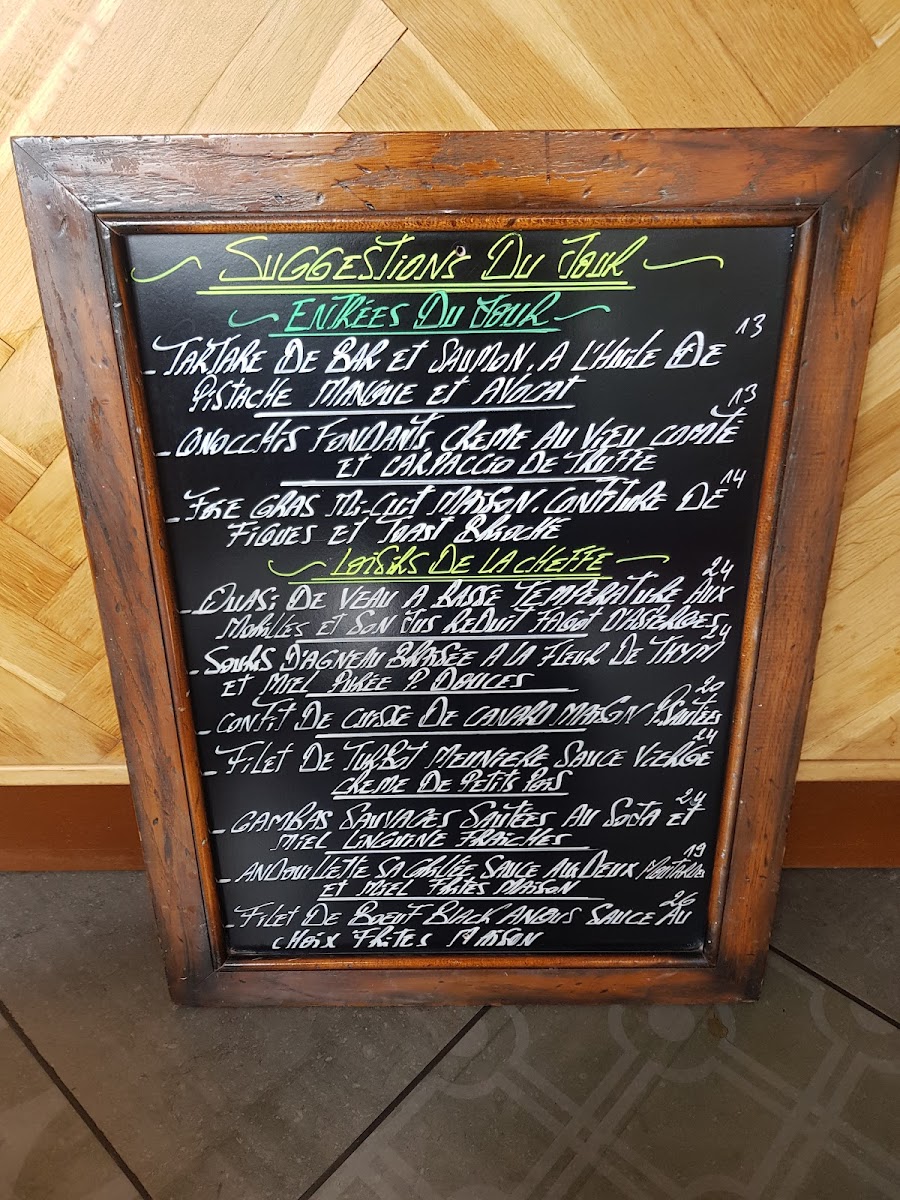 SUGGESTIONS DU JOUR
ENTRÉES DU JOUR
13
- TARTARE DE BAR ET SAUMON, A L'HUILE DE
PISTACHE MANGUE ET AVOCAT
13
- GNOCCHIS FONDANTS CREME AU VIEU COMTÉ
ET CARPACCIO DE TRUFFE
14
- FOIE GRAS MI-CUIT MAISON. CONFITURE DE
FIGUES ET TOAST BRIOCHÉ
LOISIRS DE LA CHEFFE
24
- QUASI DE VEAU A BASSE TEMPERATURE AUX
MORILLES ET SON JUS REDUIT FAGOT D'ASPERGES
24
- SOURIS D'AGNEAU BRAISÉE A LA FLEUR DE THYM
ET MIEL PURÉE P. DOUCES
20
- CONFIT DE CUISSE DE CANARD MAISON P. SAUTÉES
24
- FILET DE TURBOT MEUNIERE SAUCE VIERGE
CREME DE PETITS POIS
24
- GAMBAS SAUVAGES SAUTÉES AU SOJA ET
MIEL LINGUINE FRAICHES
19
- ANDOUILLETTE 5A GRILLÉE SAUCE AUX DEUX MOUTARDES
ET MIEL FRITES MAISON
26
- FILET DE BOEUF BLACK ANGUS SAUCE AU
CHOIX FRITES MAISON